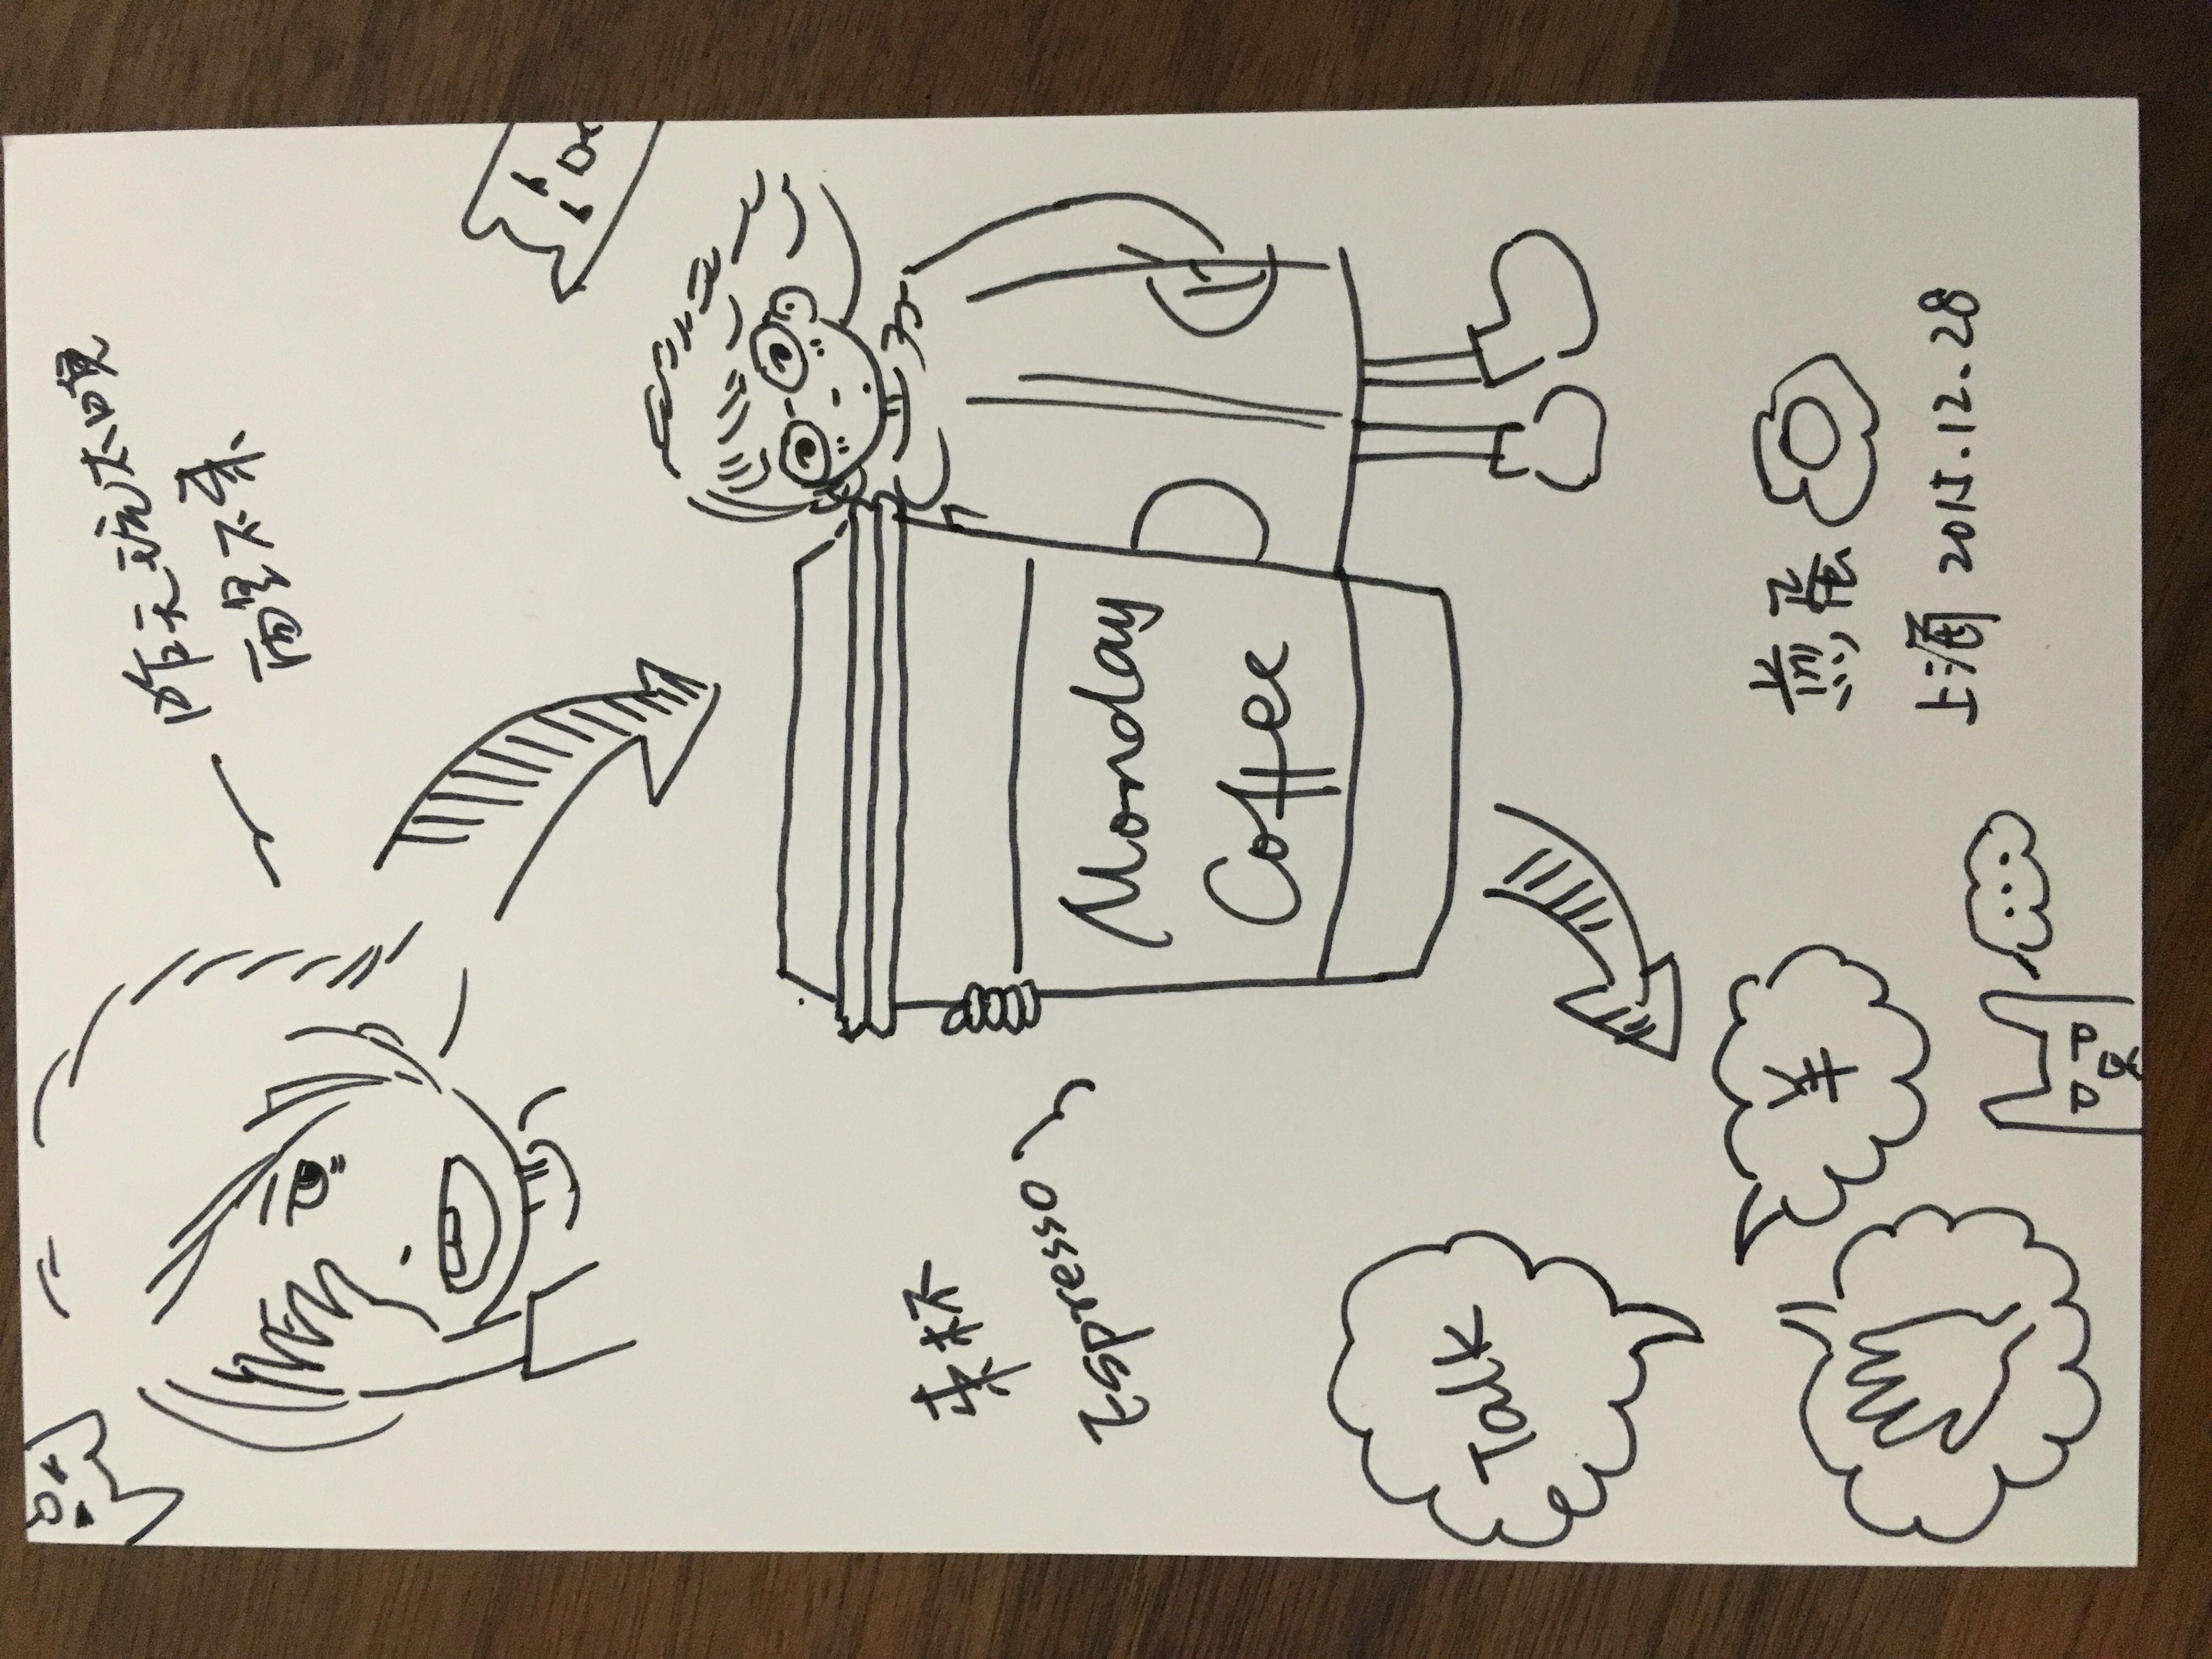 昨天玩太晚
醒不来
来杯
Espresso
Monday
Coffee
Talk
¥
煎蛋
上海 2015.12.28
...